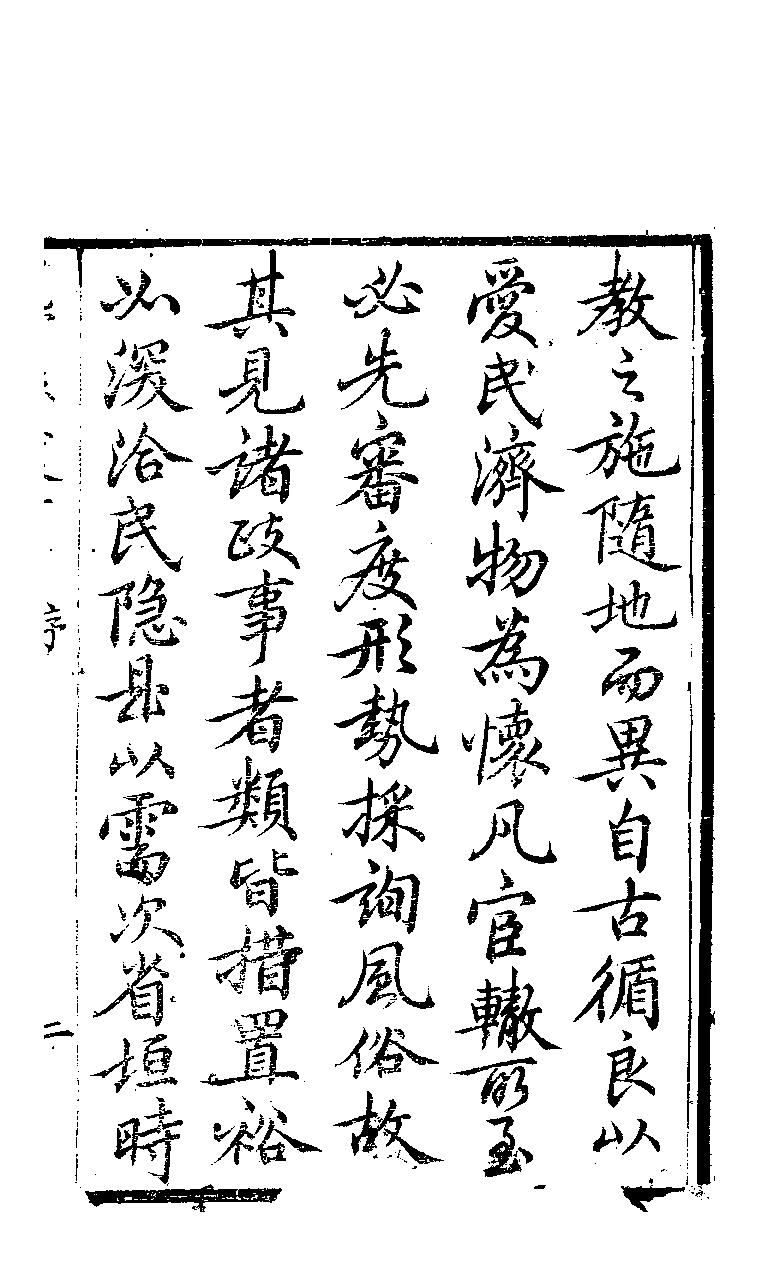 教之施隨地而異自古循良以
愛民濟物為懷凡宦轍所至
必先審度形勢採詢風俗故
其見諸政事者類皆措置裕
如深洽民隐是以需次省垣時
序
二